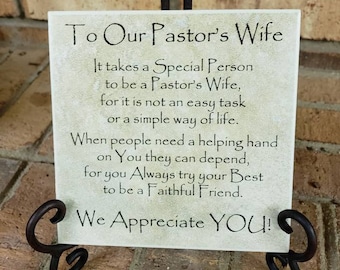 To Our Pastor's Wife
It takes a Special Person
to be a Pastor's Wife,
for it is not an easy task
or a simple way of life.
When people need a helping hand
on You they can depend,
for you Always try your Best
to be a Faithful Friend.
We Appreciate YOU!